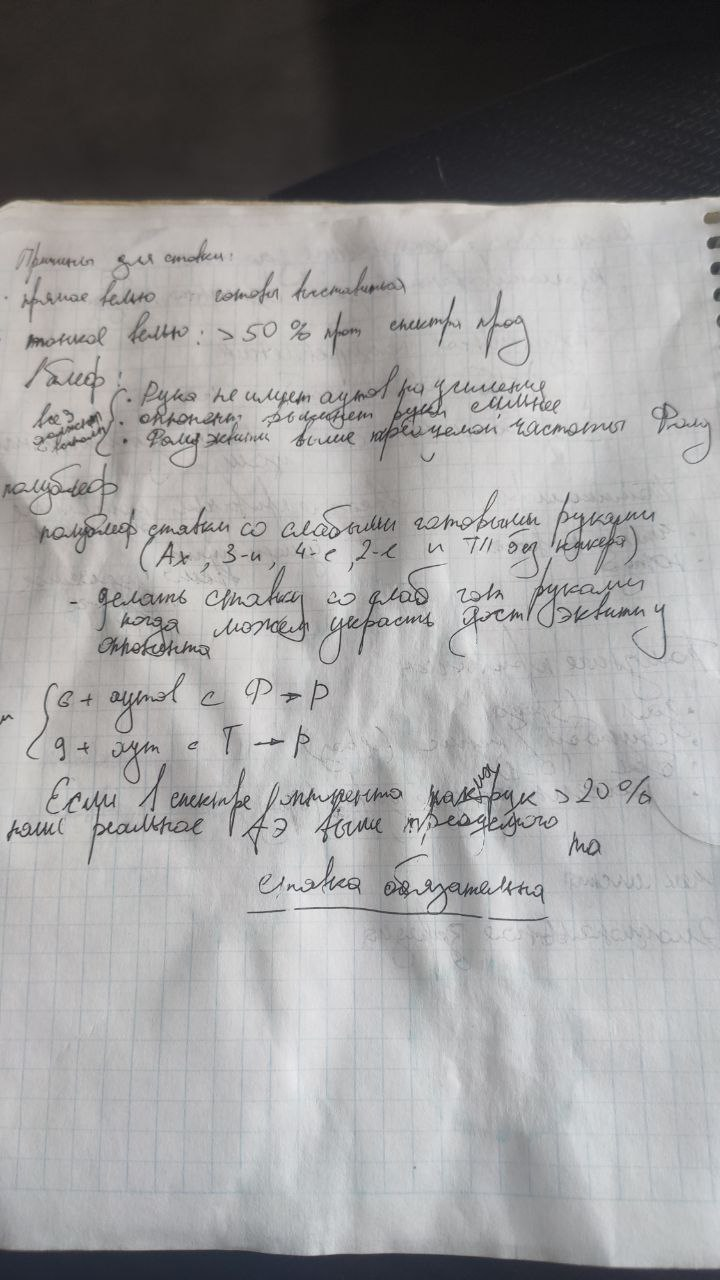 Причины для ставки:
· прямое велью готовы выставиться
· тонкое велью: > 50 % прот спектра прод
Блеф:
· Рука не имеет аутов на усиление
все 3 должны
· оппонент выкинет руки сильнее
· Фолд эквити выше требуемой частоты Фолд
полублеф
полублеф ставки со слабыми готовыми руками
(Ах, 3-и, 4-е, 2-е и ТП без кикера)
- делать ставку со слаб гот руками
когда можем украсть дост эквити у
оппонента
и
6 + аутов с Ф → Р
9 + аут с Т → Р
Если в спектре оппонента рук > 20%
реальное ФЭ выше требуемого
то
ставка обязательна